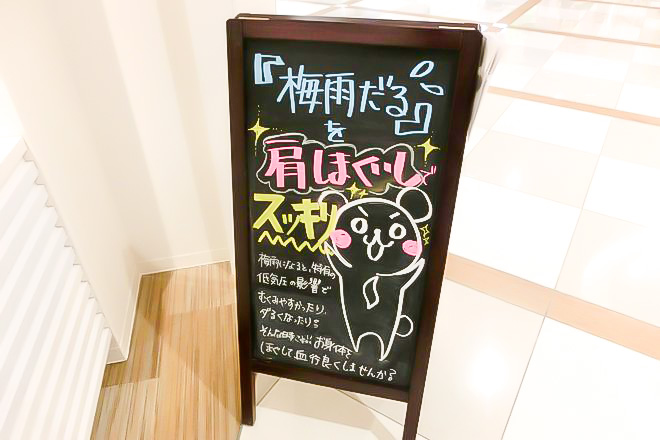 『梅雨だる』
を
肩ほぐしで
スッキリ
梅雨になると、特有の
低気圧の影響で
むくみやすかったり、
ダるくなったり。
そんな時こそ!! お身体を
ほぐして血行良くしませんか?